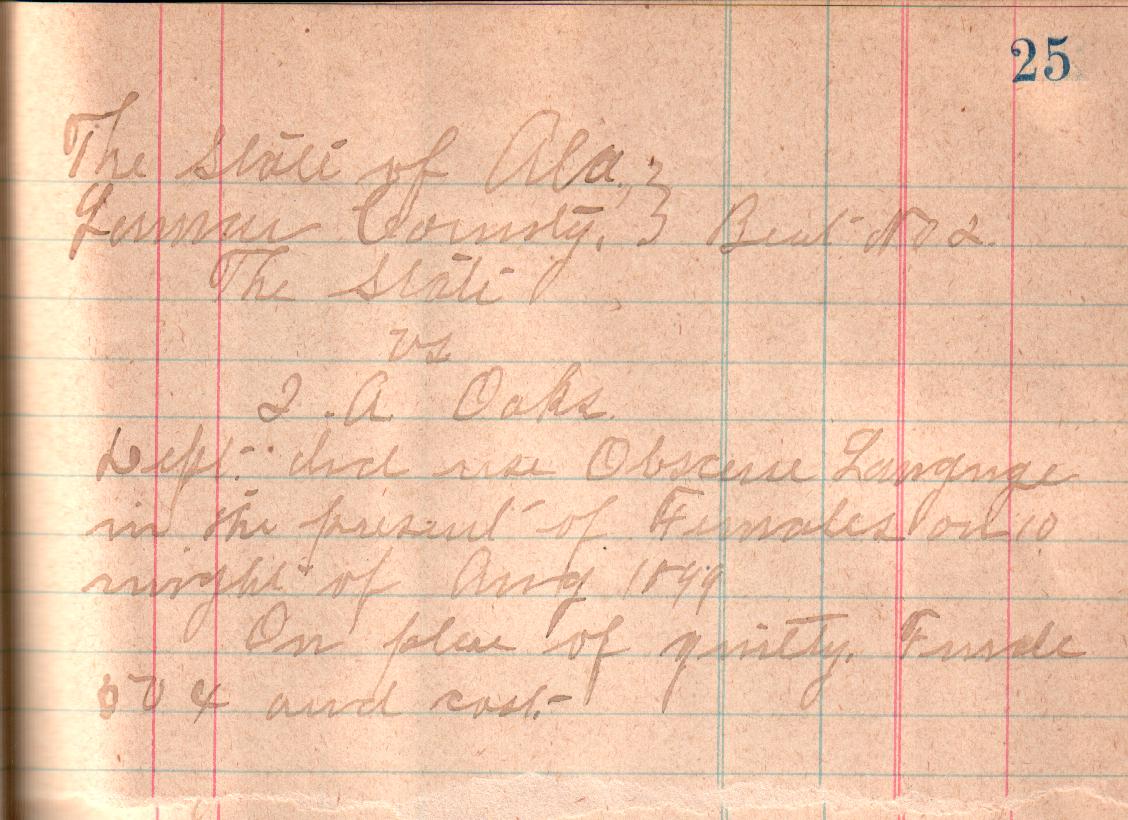 25
The State of Ala, }
Lamar County, } Beat No 2.
The State
vs
J. A Oaks.
Deft. did use Obscene Language
in the present of Females on 10
night of Aug 1899
On plea of guilty. Finde
50 ¢ and cost.